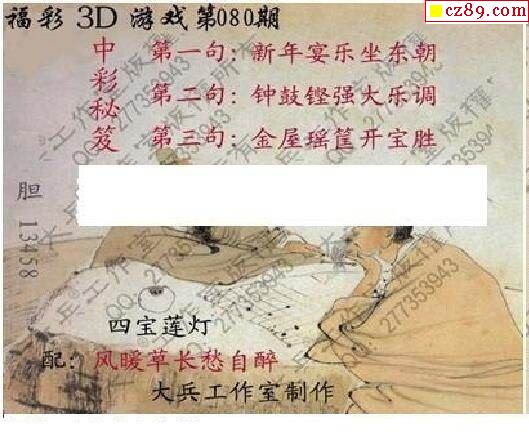 福彩 3D 游戏第080期
cz89.com
中彩秘笈
第一句：新年宴乐坐东朝
第二句：钟鼓铿强大乐调
第三句：金屋瑶筐开宝胜
胆 13458
四宝莲灯
配：风暖草长愁自醉
大兵工作室制作
大兵工作室版权所有
QQ:277353943